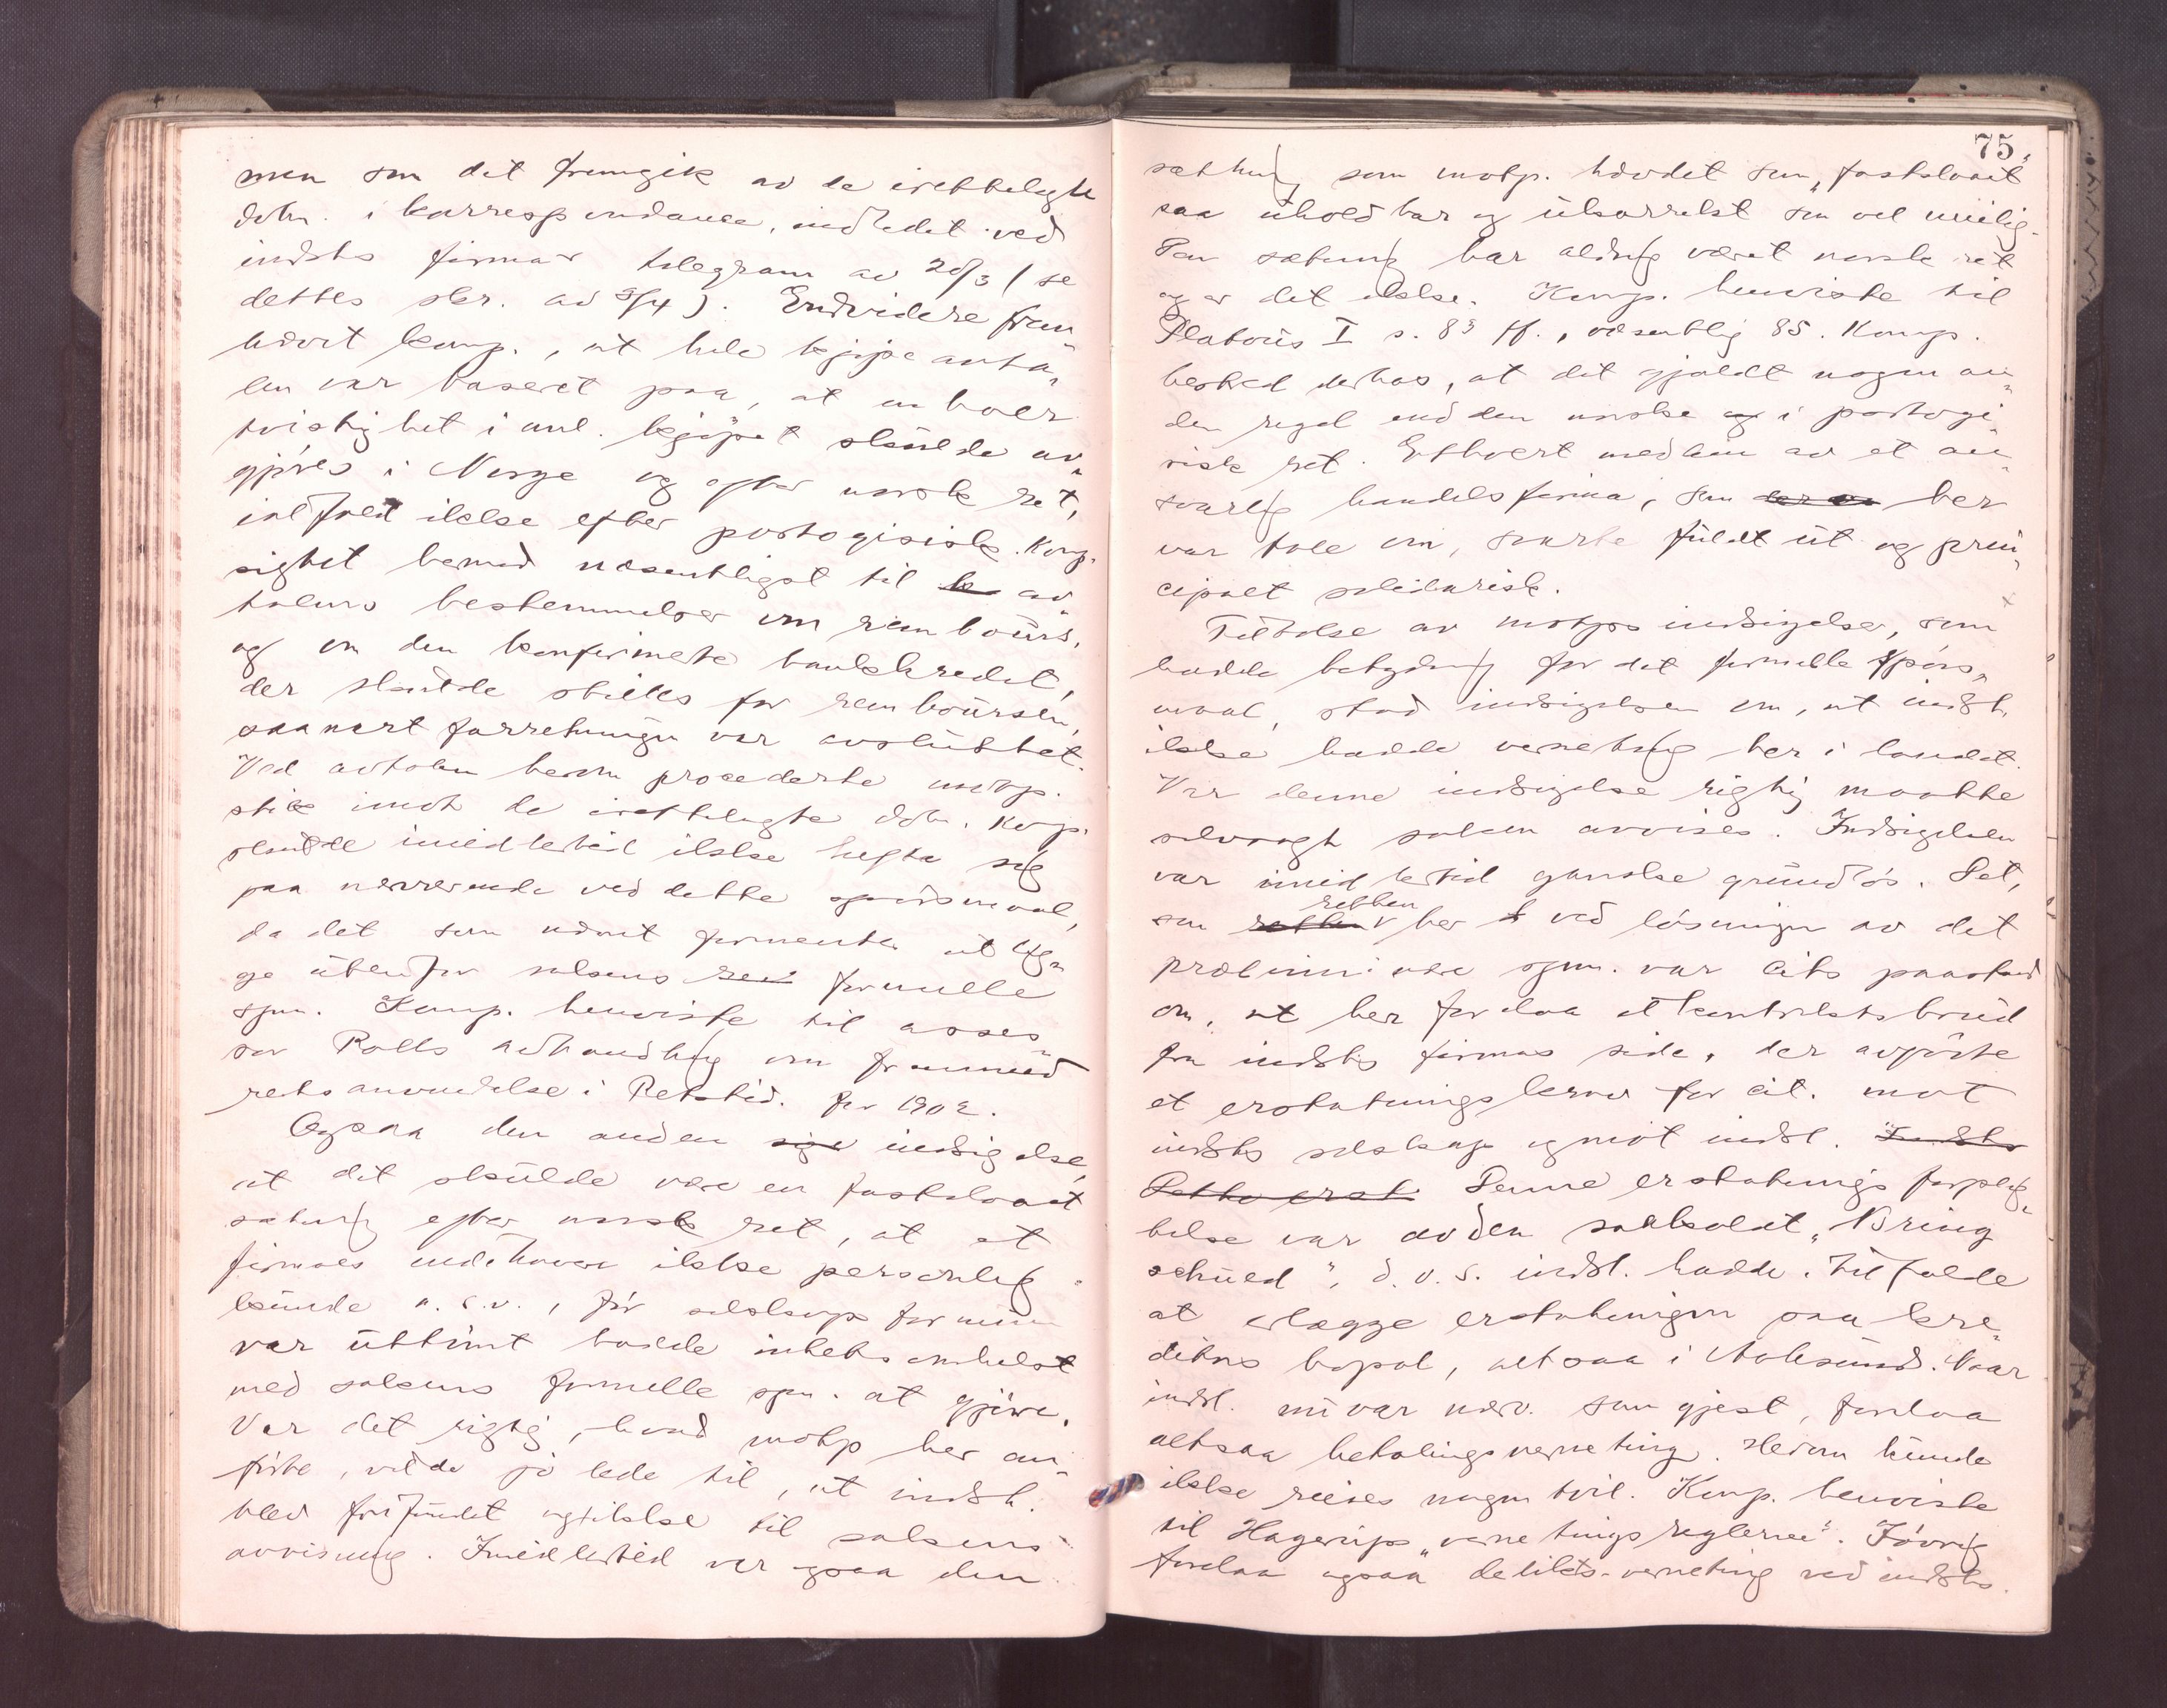 men som det fremgik av de irettelagte
dokn. i korrespondance, indledet ved
indsts firmas telegram av 20/3 (se
dettes skr. av 9/4). Endvidere frem
hævet komp., at hele kjøpeavta„
len var baseret paa, at enhver
tvistighet i anl. kjøpet skulde av„
gjøres i Norge og efter norsk ret,
ialfald ikke efter portogisisk. Komp.
sigtet hermed væsentligst til av„
talens bestemmelser om rembours,
og om den konfirmerte bankkredit,
der skulde stilles for remboursen,
saasnart forretningen var avsluttet.
Ved avtalen herom procederte motp.
stik imot de irettelagte dokn. Komp.
skulde imidlertid ikke hefte sig
paa nærværende ved dette spørsmaal,
da det som nævnt formentes at lig„
ge utenfor sakens formelle
spm. Komp. henviste til asses„
sor Rolls avhandling om fremmed
rets anvendelse i Retstid. for 1902.
Ogsaa den anden indsigelse,
at det skulde være en fastslaaet
sætning efter norsk ret, at et
firmaes indehaver ikke personlig
kunde o.s.v., før selskaps formuen
var uttømt hadde intetsomhelst
med sakens formelle spm. at gjøre.
Var det rigtig, hvad motp her an„
førte, vilde jo lede til, at indst.
blev frifundet og ikke til sakens
avvisning. Imidlertid var ogsaa den
75.
sætning som motp. hævdet som „fastslaaet
saa uholdbar og ukorrekt som vel mulig.
Den sætning har aldrig været norsk ret
og er det ikke. Komp. henviste til
Platous I s. 83 ff., væsentlig 85. Komp.
bestred derhos, at det gjaldt nogen an„
den regel end den norske i portogi„
sisk ret. Ethvert medlem av et an„
svarlig handelsfirma, som her
var tale om, svarte fuldt ut og prin„
cipalt solidarisk.
Tilbake av motps indsigelser, som
hadde betydning for det formelle spørs„
maal, stod indsigelsen om, at indst.
ikke hadde verneting her i landet.
Var denne indsigelse rigtig maatte
selvsagt saken avvises. Indsigelsen
var imidlertid ganske grundløs. Det,
som retten her ved løsningen av det
præliminære spm. var cits paastand
om, at her forelaa et kontraktsbrud
fra indsts firmas side, der avgjørte
et erstatningskrav for cit. mot
indsts selskap og mot indst. Indsts
Dette erst. Denne erstatnings forplig„
telse var av den saakaldt „Bring
schuld", d.v.s. indst. hadde i tilfælde
at erlægge erstatningen paa kre„
ditors bopæl, altsaa i Aalesund. Naar
indst. nu var nærv. som gjest, forelaa
altsaa betalingsverneting. Herom kunde
ikke reises nogen tvil. Komp. henviste
til Hagerups „vernetingsreglerne". Iøvrig
forelaa ogsaa delikts-verneting ved indsts.